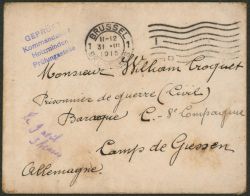 GEPRÜFT
Kommandantur
Holzminden
Prüfungsstelle
BRUSSEL
11-12
1 31-III 1
1915
Monsieur William Croquet
Prisonnier de guerre (Civil)
Baraque C. - 8e Compagnie
Camp de Giessen
Allemagne